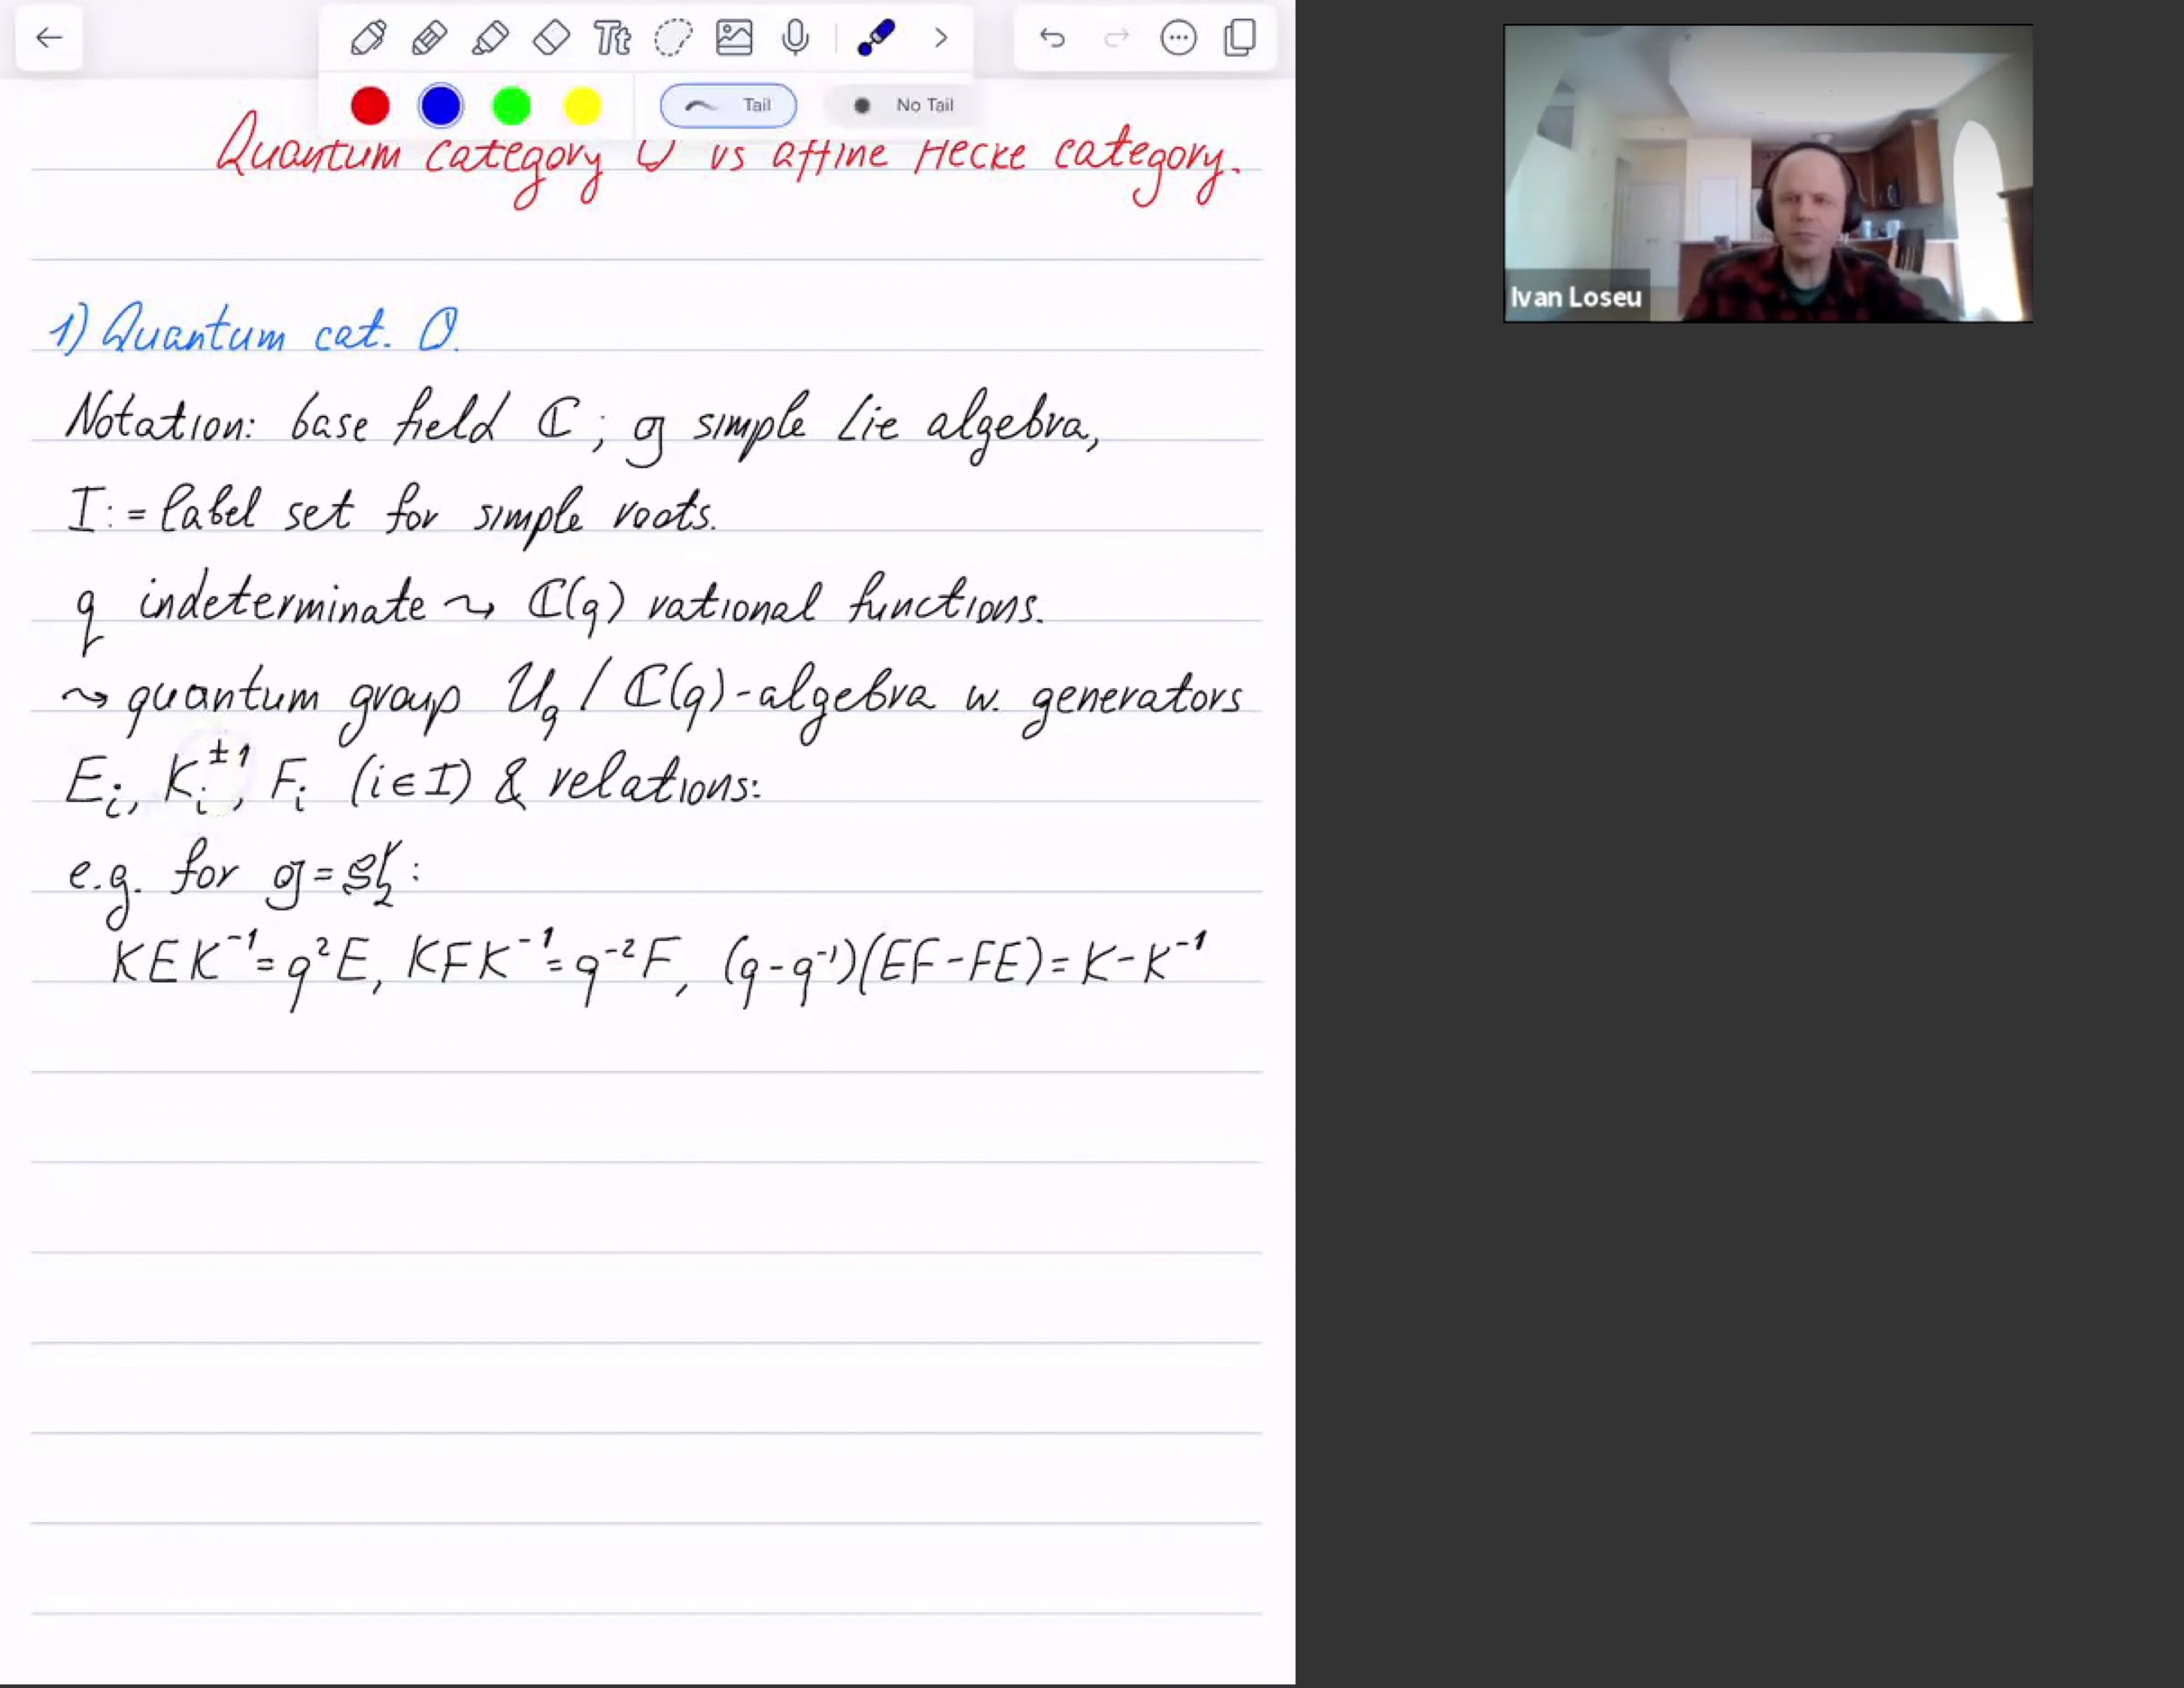 Tt
Tail
No Tail
Quantum category O vs affine Hecke category.
1) Quantum cat. O.
Notation: base field ℂ; 𝔤 simple Lie algebra,
I := label set for simple roots.
q indeterminate ⇝ ℂ(q) rational functions.
⇝ quantum group U_q / ℂ(q)-algebra w. generators
E_i, K_i^{±1}, F_i (i∈I) & relations:
e.g. for 𝔤 = 𝔰𝔩_2:
KEK^{-1} = q^2E, KFK^{-1} = q^{-2}F, (q-q^{-1})(EF-FE) = K-K^{-1}
Ivan Loseu